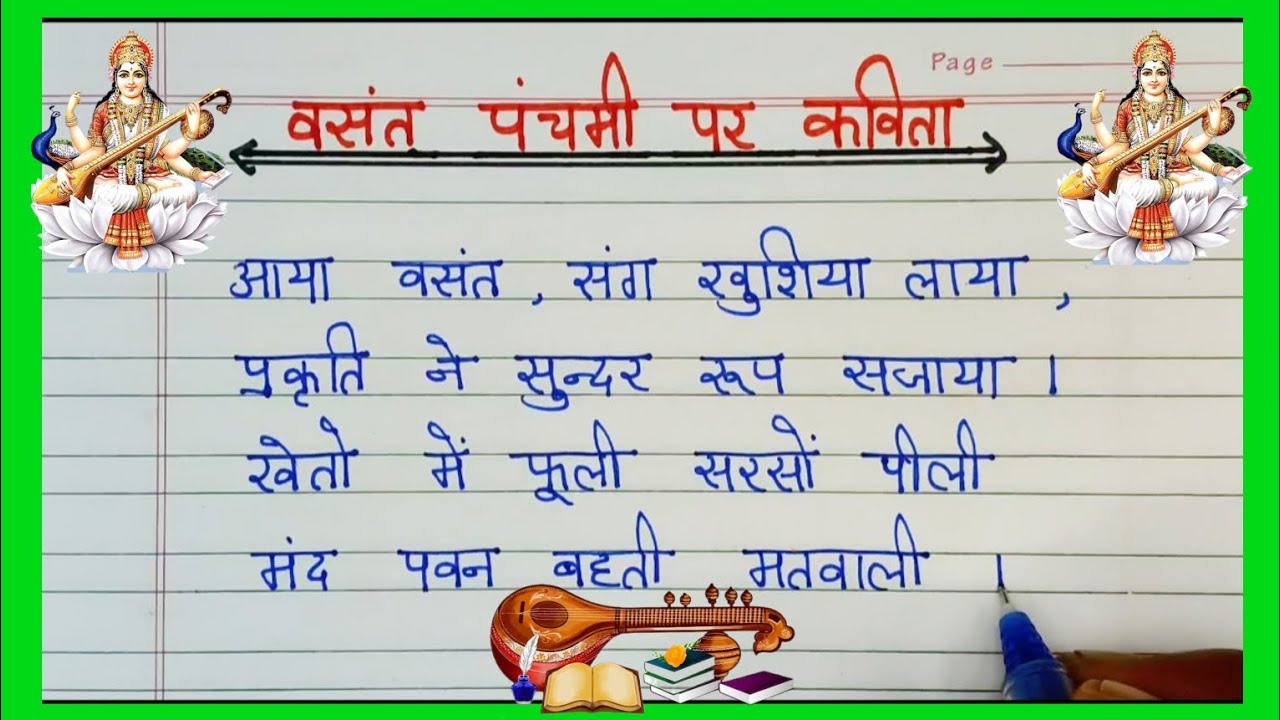 Page
वसंत पंचमी पर कविता
आया वसंत , संग खुशिया लाया ,
प्रकृति ने सुन्दर रूप सजाया ।
खेतो में फूली सरसों पीली
मंद पवन बहती मतवाली ।